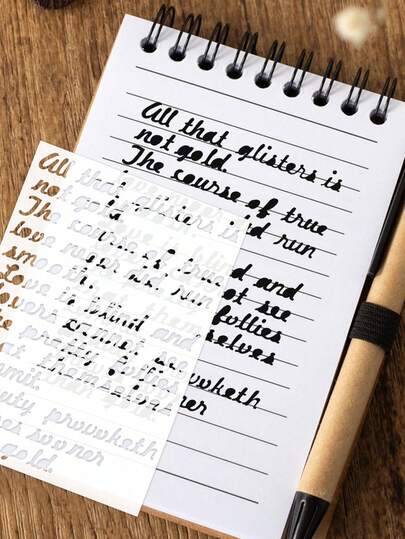 All that glisters is
not gold.
The course of true
run
and
see
follies
selves
All that glisters is
not gold.
The course of true
love never did run
smooth.
Love is blind and
lovers cannot see
he pretty follies
at themselves
mmit.
uty provoketh
es sooner
gold.